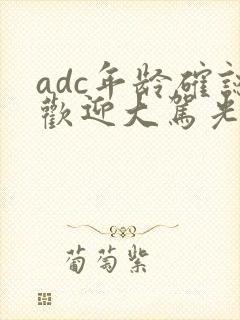 adc年龄確認
歡迎大駕光
葡萄紫